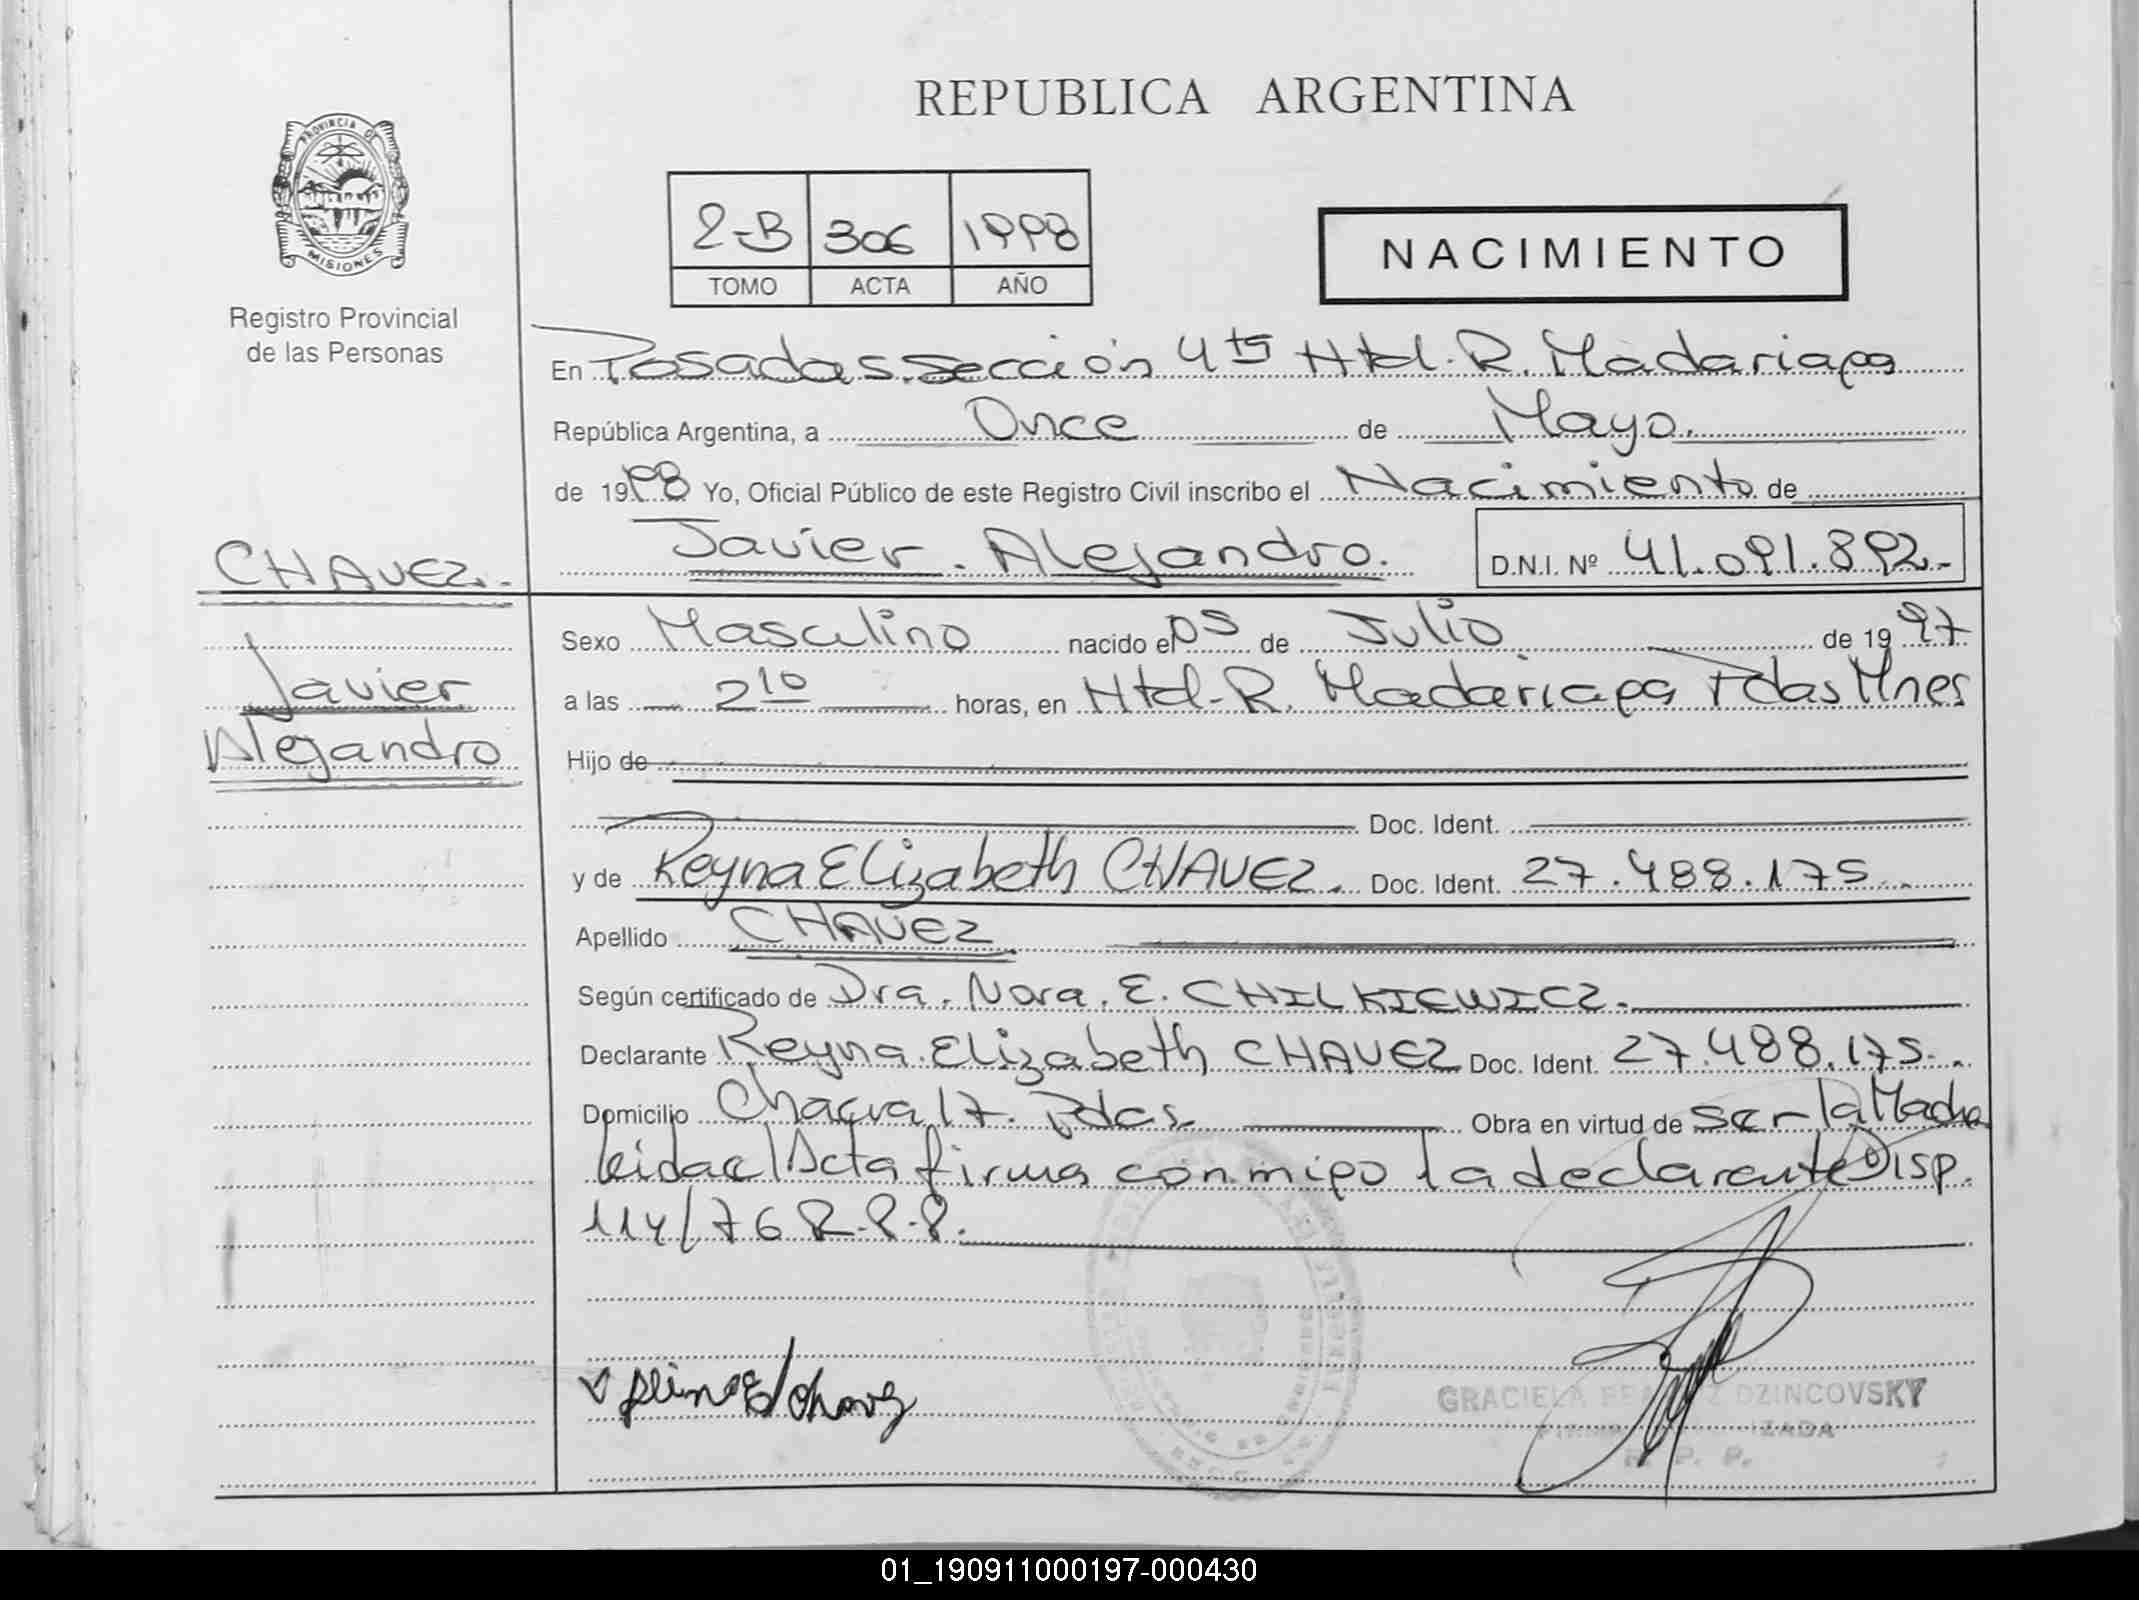 REPUBLICA ARGENTINA
PROVINCIA DE
MISIONES
Registro Provincial
de las Personas
2-B 306 1998
TOMO ACTA AÑO
NACIMIENTO
En Posadas sección 4ta Htal. R. Madariaga
República Argentina, a Once de Mayo.
de 1998 Yo, Oficial Público de este Registro Civil inscribo el Nacimiento de
Javier. Alejandro. D.N.I. Nº 41.091.892.-
CHAVEZ..
Javier
Alejandro
Sexo Masculino nacido el 05 de Julio de 1997
a las 2 10 horas, en Htal-R. Madariaga Pdas Mnes
Hijo de
Doc. Ident.
y de Reyna Elizabeth CHAVEZ. Doc. Ident. 27.488.175..
Apellido CHAVEZ
Según certificado de Dra. Nora. E. CHILKIEWICZ.
Declarante Reyna. Elizabeth CHAVEZ Doc. Ident. 27.488.175-..
Domicilio Chacra 17. Pdas. Obra en virtud de ser la Madre
leida el Acta firma conmigo la declarante Disp.
114/76 R-P-P.
GRACIELA DZINCOVSKY
R. P. P.
01_190911000197-000430